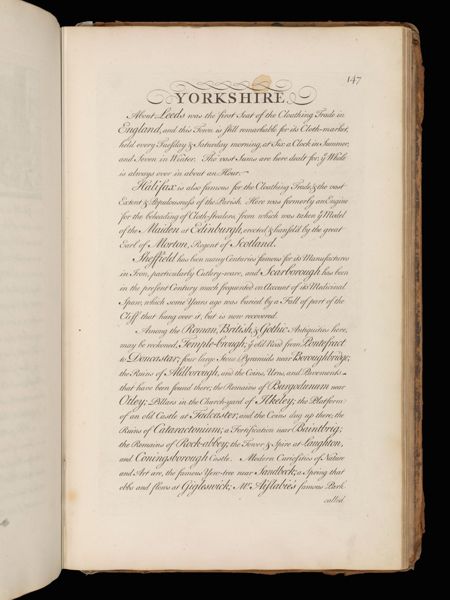 147
YORKSHIRE.
About Leeds was the first Seat of the Cloathing Trade in
England, and this Town is still remarkable for its Cloth-market,
held every Tuesday & Saturday morning, at Six a Clock in Summer,
and Seven in Winter. The vast Sums are here dealt for, yͤ Whole
is always over in about an Hour.
Halifax is also famous for the Cloathing Trade, & the vast
Extent & Populousness of the Parish. Here was formerly an Engine
for the beheading of Cloth-stealers, from which was taken yͤ Model
of the Maiden at Edinburgh, erected & hansel'd by the great
Earl of Morton, Regent of Scotland.
Sheffield has been many Centuries famous for its Manufactures
in Iron, particularly Cutlery-ware, and Scarborough has been
in the present Century much frequented on Account of its Medicinal
Spaw, which some Years ago was buried by a Fall of part of the
Cliff that hung over it, but is now recovered.
Among the Roman, British, & Gothic Antiquities here,
may be reckoned, Temple-brough, yͤ old Road from Pontefract
to Doncaster; four large Stone Pyramids near Boroughbridge;
the Ruins of Aldborough, and the Coins, Urns, and Pavements
that have been found there; the Remains of Burgodunum near
Otley; Pillars in the Church-yard of Ilkeley; the Platform
of an old Castle at Tadcaster, and the Coins dug up there; the
Ruins of Cataractonium; a Fortification near Baintbrig;
the Remains of Rock-abbey; the Tower & Spire at Laughton,
and Coningsborough Castle. Modern Curiosities of Nature
and Art are, the famous Yew-tree near Sandbeck; a Spring that
ebbs and flows at Gigleswick; Mr. Aislabie's famous Park
called